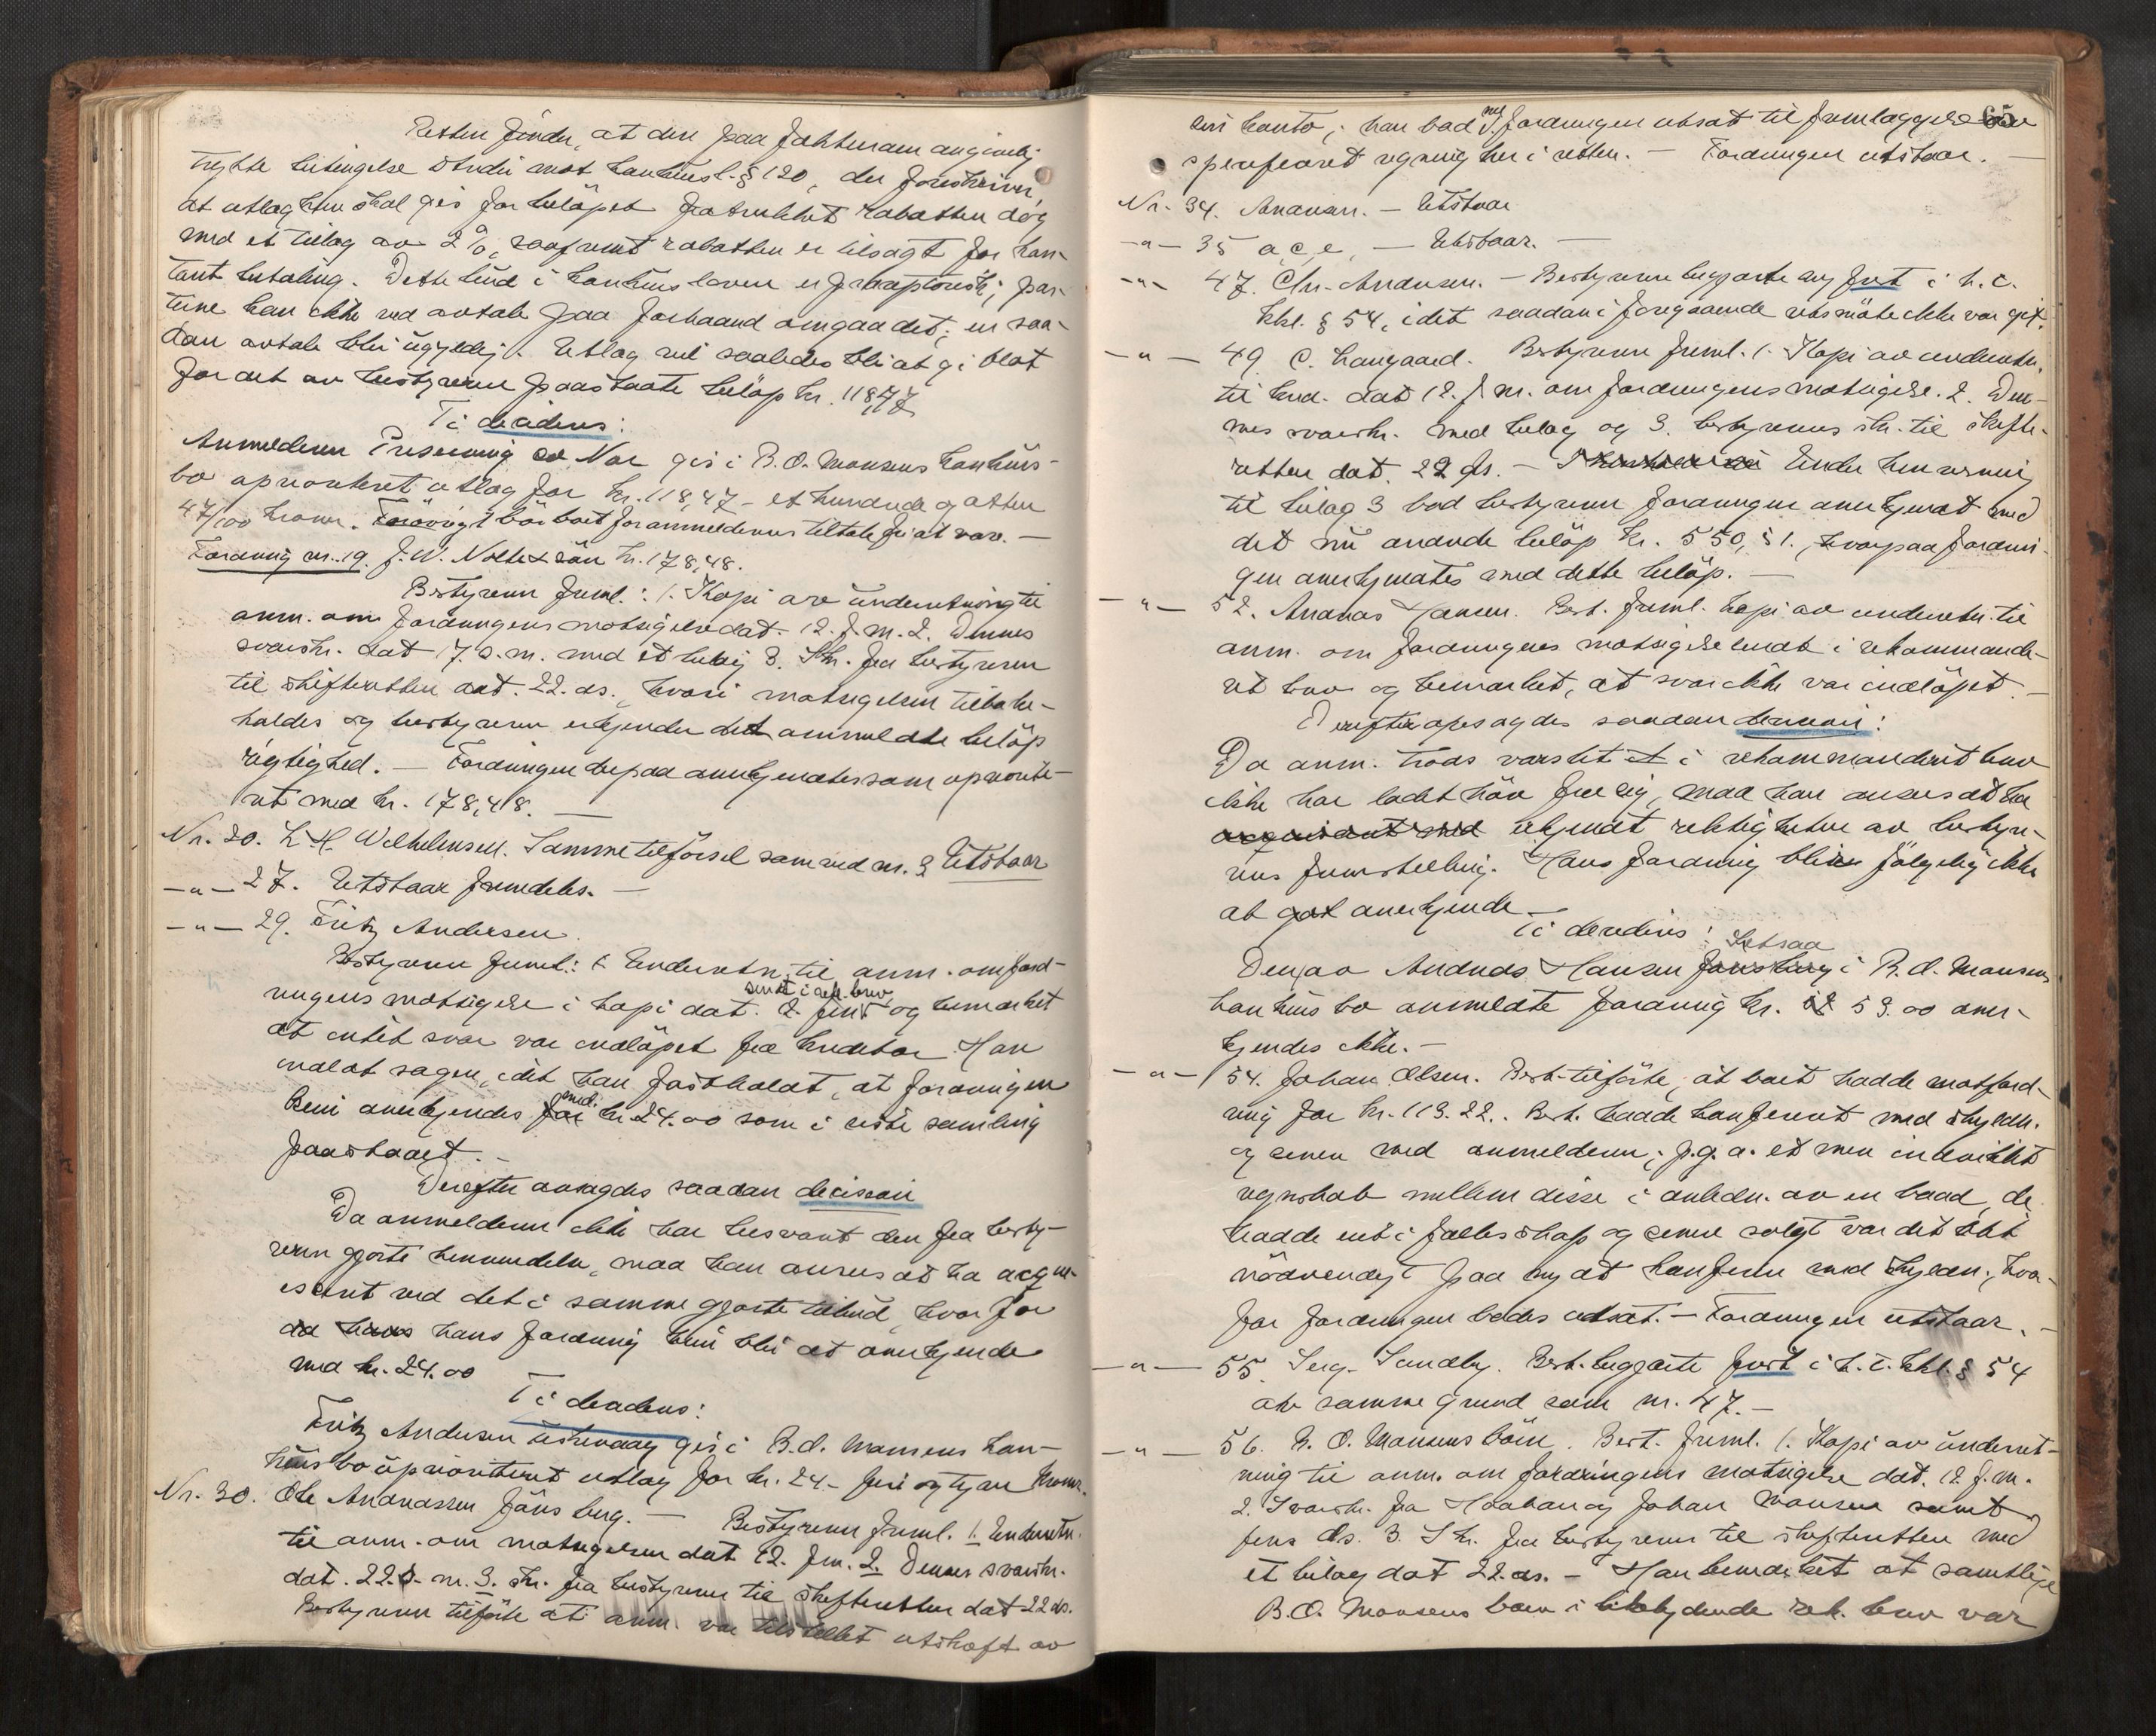 Retten finder, at den paa fakturaen angivelig
trykte betingelse strider mot konkursl. § 120, der foreskriver,
at utlæg kun skal gis for beløpet fratrukket rabatten dog
med et tillæg av 2 %, saafremt rabatten er tilsagt for kon-
tant betaling. Dette bud i konkursloven er præceptorisk; par-
terne kan ikke ved avtale paa forhaand omgaa det; en saa-
dan avtale blir ugyldig. Utlæg vil saaledes bli at gi blot
for det av bestyreren paastaate beløp kr. 118,47
Ti decideres:
Anmelderen gis i B. O. Monsens konkurs-
bo uprioritert utlæg for kr. 118,47 – et hundrede og atten
47/100 kroner. Forøvrigt bør boet for anmelderens tiltale fri at være. –
Fordring nr. 19. J. W. Nolte & søn kr. 178,48.
Bestyreren freml.: 1. Kopi av underretning til
anm. om fordringens motsigelse dat. 12. f. m. 2. Dennes
svarskr. dat 17. s. m. med et bilag 3. Skr. fra bestyreren
til skifteretten dat. 22. ds., hvori motsigelsen tilbake-
holdes og bestyreren erkjender det anmeldte beløp
rigtighed. – Fordringen derpaa anerkjendtes som upriorite-
rt med kr. 178,48. –
Nr. 20. L. H. Wilhelmsen. Samme tilførsel som ved nr. 3 Utstaar
– " – 27. Utstaar fremdeles. –
– " – 29. Fritz Andersen.
Bestyreren freml.: 1. Underretn. til anm. om ford-
sendt i rek. brev
ringens motsigelse i kopi dat. og bemærket
at intet svar var indløpet fra kreditor. Han
indlot sagen, idet han fastholdt, at fordringen
med
kun anerkjendes for kr. 24.00 som i siste samling
paastaaet. –
Derefter avsagdes saadan decision
Da anmelderen ikke har besvart den fra besty-
reren gjorte henvendelse, maa han ansees at ha acqui-
escert ved det i samme gjorte tilbud, hvorfor
da hans hans fordring kun blir at anerkjende
med kr. 24.00
Ti decideres:
Fritz Andersen gis i B. O. Monsens kon-
kursbo uprioritert utlæg for kr. 24.– fire og tyve kroner.
Nr. 30. Ole Andreassen Jønsberg. – Bestyreren freml. 1. Underretn.
til anm. om motsigelsen dat. 12. f. m. 2. Dennes svarskr.
dat. 22. s. m. 3. skr. fra bestyreren til skifteretten dat 22 ds.
Bestyreren tilførte at anm. var tilstillet utskrift av
65
sin konto; han bad fordringen utsat til fremlæggelse av
specificeret regning her i retten. – Fordringen utstaar. –
Nr. 34. Anansen. – Utstaar
– " – 35 a, c, e, – Utstaar. –
– " – 47. Chr. Anansen. – Bestyreren begjærte ny frist i h. t.
kkl. § 54, idet saadan i foregaaende retsmøte ikke var git.
– " – 49 C. Langaard. Bestyreren freml. 1. Kopi av underretn.
til kred. dat 12. f. m. om fordringens motsigelse. 2. Den-
nes svarskr. med bilag og 3. bestyrerens skr. til skifte-
retten dat. 22 ds. – Under henvisning
til bilag 3 bad bestyreren fordringen anerkjendt med
det nu anførte beløp kr. 550,51., hvorpaa fordrin-
gen anerkjendtes med dette beløp. –
– " – 52. Andreas Hansen. Best. freml. kopi av underretn. til
anm. om fordringens motsigelse sendt i rekommande-
rt brev og bemærket, at svar ikke var indløpet. –
Derefter avsagdes saadan decision:
Da anm. trods varslet i rekommandert brev
ikke har ladt høre fra sig, maa han ansees at ha
acquiescert ved erkjendt riktigheten av bestyre-
rens fremstilling. Hans fordring blir følgelig ikke
at anerkjende –
Ti decideres:
Den av Andreas Hansen i B. O. Monsens
konkursbo anmeldte fordring kr. 53.00 aner-
kjendes ikke. –
– " – 54. Johan Olsen. Best. tilførte, at boet hadde motford-
ring for kr. 113.22. Best. hadde konferert med skyldn.
og senere med anmelderen; p. g. a. et men indviklet
regnskab mellem disse i anledn. av en baad, de
hadde eiet i fællesskap og senere solgt var det blit
nødvendigt paa ny at konferere med skyldn., hvor-
for fordringen bedes utsat. – Fordringen utstaar. –
– " – 55. Serg. Sandby. Best. begjærte frist i h. t. kkl. § 54
av samme grund som nr. 47. –
– " – 56. B. O. Monsens børn. Best. freml. 1. Kopi av underret-
ning til anm. om fordringens motsigelse dat. 12. f. m.
2. Svarskr. fra Haakon og Johan Monsen samt
ds. 3. Skr. fra bestyreren til skifteretten med
et bilag dat 22. ds. – Han bemærket at samtlige
B. O. Monsens børn i likelydende rek. brev var